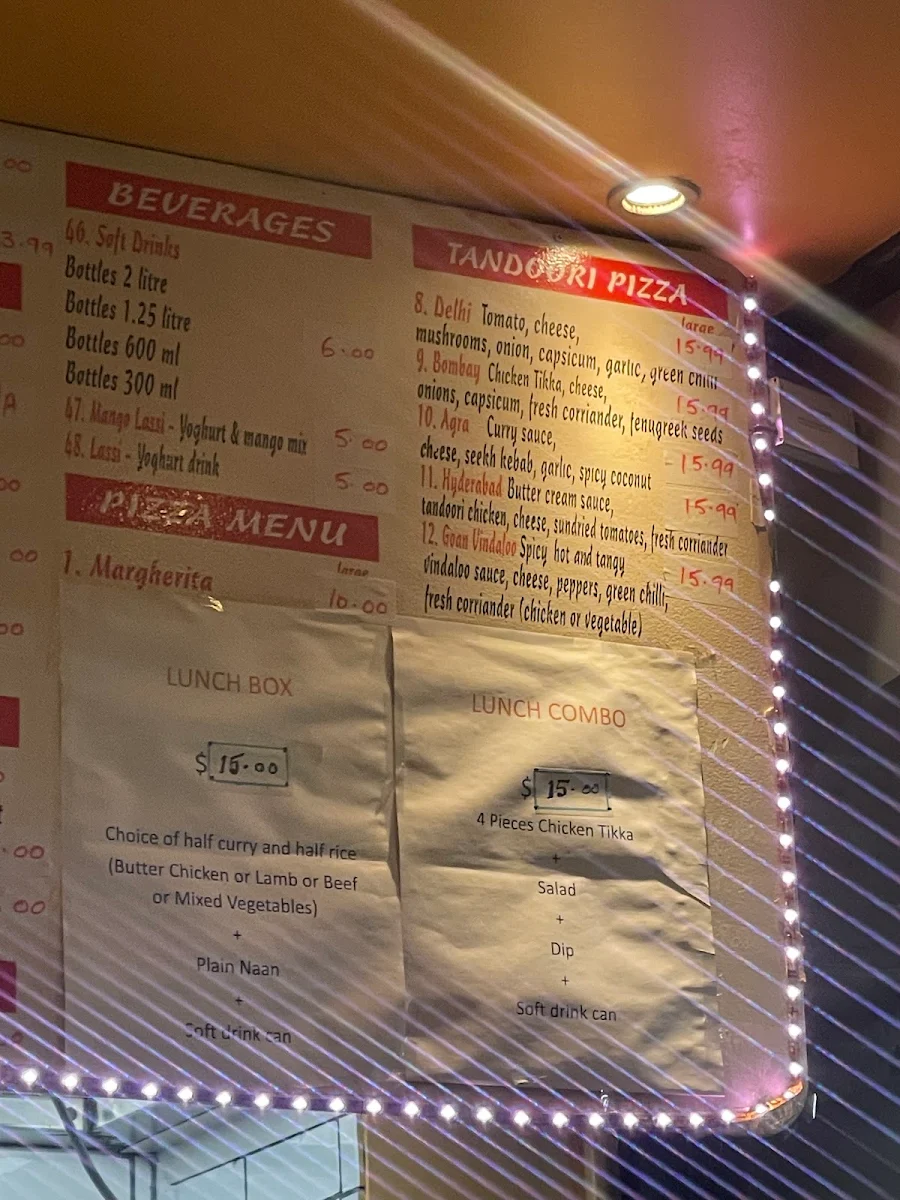 00
3.99
00
A
00
00
00
.00
. 00
BEVERAGES
46. Soft Drinks
Bottles 2 litre
Bottles 1.25 litre
Bottles 600 ml 6.00
Bottles 300 ml
47. Mango Lassi - Yoghurt & mango mix 5.00
48. Lassi - Yoghurt drink 5.00
PIZZA MENU
large
1. Margherita 10.00
TANDOORI PIZZA
large
8. Delhi Tomato, cheese, 15.99
mushrooms, onion, capsicum, garlic, green chilli
9. Bombay Chicken Tikka, cheese, 15.99
onions, capsicum, fresh corriander, fenugreek seeds
10. Agra Curry sauce, 15.99
cheese, seekh kebab, garlic, spicy coconut
11. Hyderabad Butter cream sauce, 15.99
tandoori chicken, cheese, sundried tomatoes, fresh corriander
12. Goan Vindaloo Spicy hot and tangy 15.99
vindaloo sauce, cheese, peppers, green chilli,
fresh corriander (chicken or vegetable)
LUNCH BOX
$ 15.00
Choice of half curry and half rice
(Butter Chicken or Lamb or Beef
or Mixed Vegetables)
+
Plain Naan
+
Soft drink can
LUNCH COMBO
$ 15.00
4 Pieces Chicken Tikka
+
Salad
+
Dip
+
Soft drink can